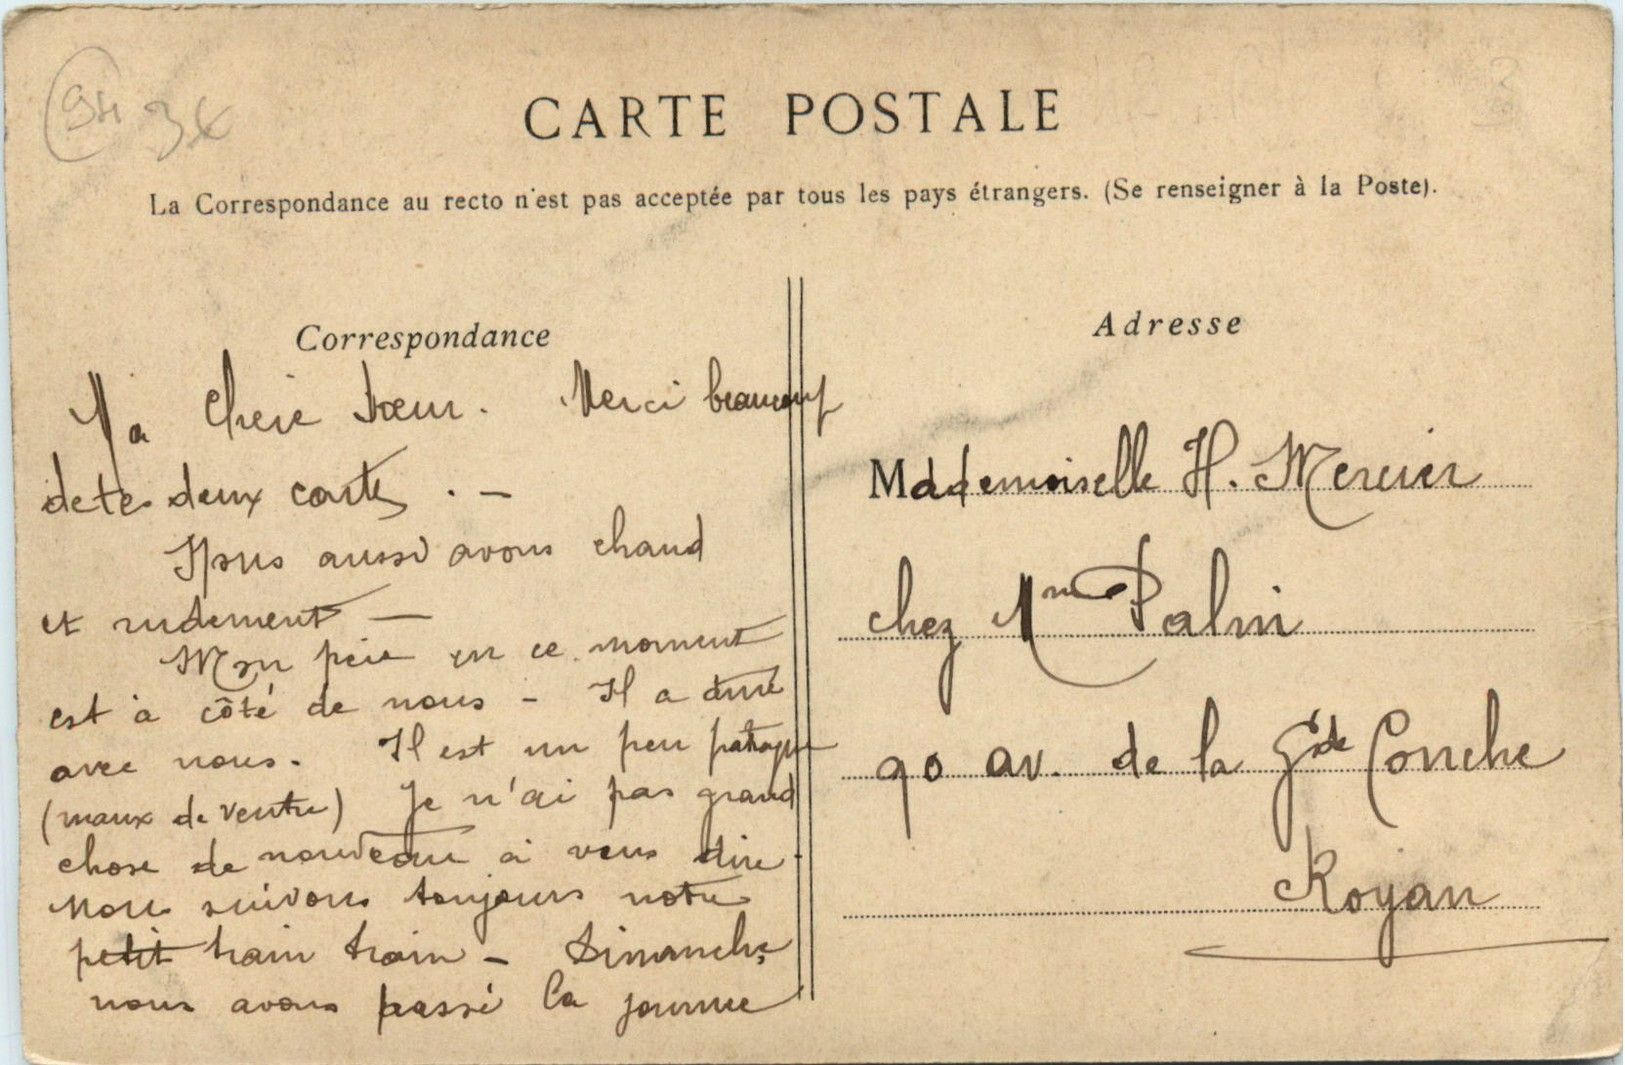 94 3x
CARTE POSTALE
La Correspondance au recto n'est pas acceptée par tous les pays étrangers. (Se renseigner à la Poste).
Correspondance
Ma Chère Sœur. Merci beaucoup
de tes deux cartes. -
Nous aussi avons chaud
et rudement -
Mon père en ce moment
est à côté de nous - Il a diné
avec nous. Il est un peu patraque
(maux de ventre) Je n'ai pas grand
chose de nouveau à vous dire.
Nous suivons toujours notre
petit train train - Dimanche
nous avons passé la journée
Adresse
Mademoiselle H. Mercier
chez Mme
90 av. de la Gde Conche
Royan